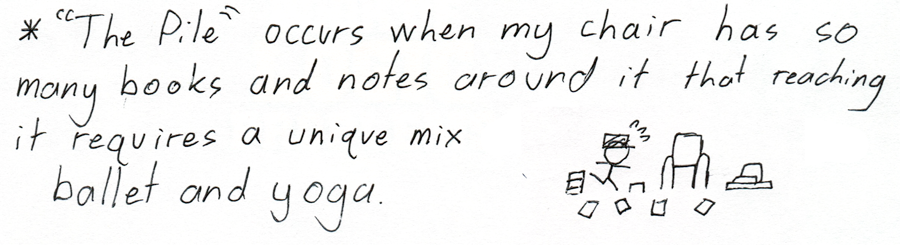 * "The Pile" occurs when my chair has so
many books and notes around it that reaching
it requires a unique mix
ballet and yoga.